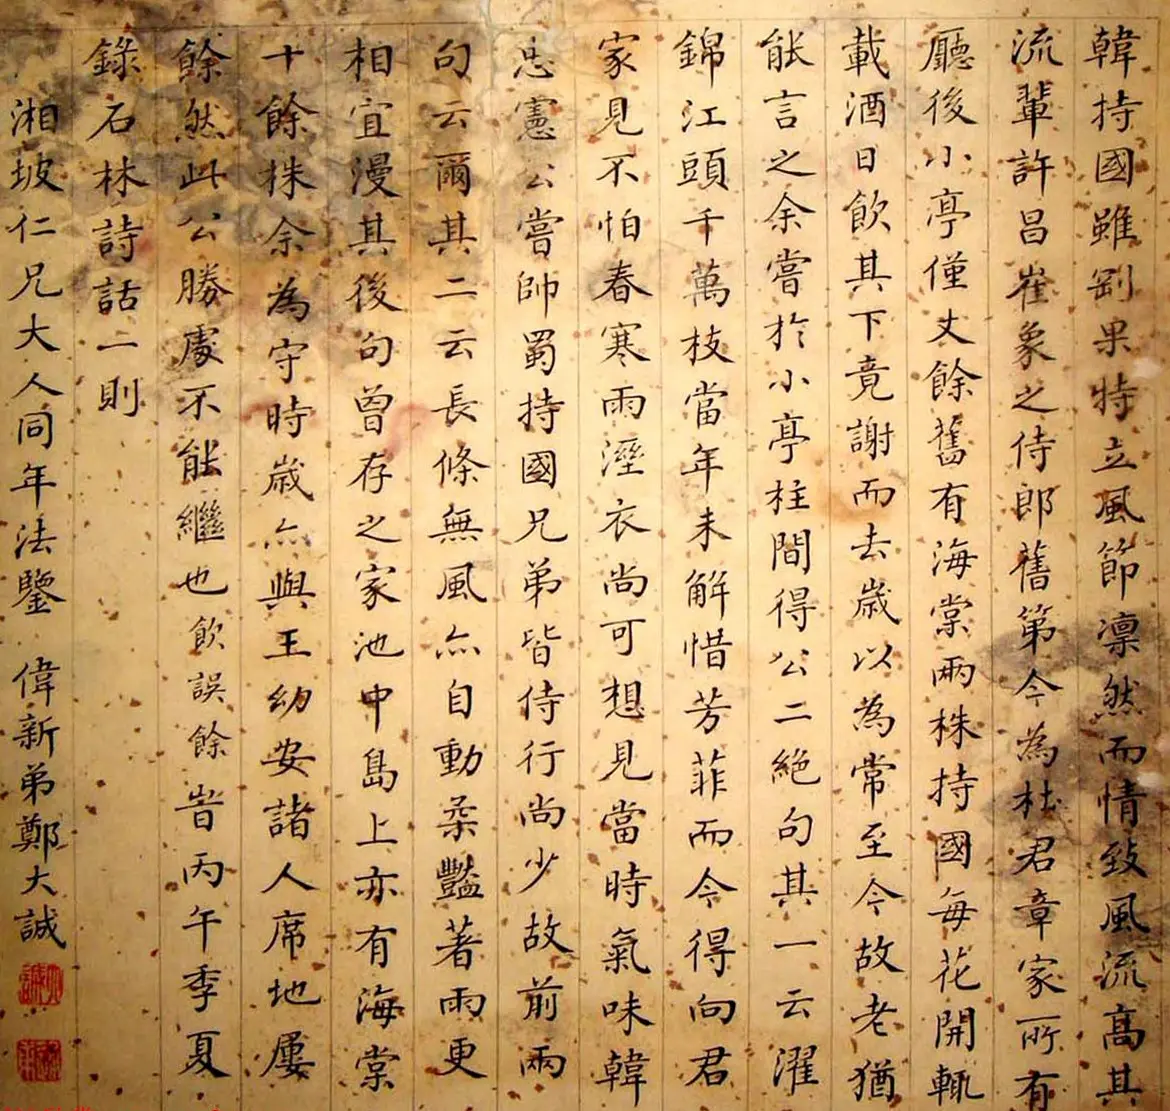 韓持國雖剛果特立風節凛然而情致風流髙其
流輩許昌崔象之侍郎舊第今為杜君章家所有
廳後小亭僅丈餘舊有海棠兩株持國每花開輒
載酒日飲其下竟謝而去歲以為常至今故老猶
能言之余嘗於小亭柱間得公二絕句其一云濯
錦江頭千萬枝當年未解惜芳菲而今得向君
家見不怕春寒雨溼衣尚可想見當時氣味韓
忠憲公嘗帥蜀持國兄弟皆侍行尚少故前兩
句云爾其二云長條無風亦自動柔豔著雨更
相宜漫其後句曾存之家池中島上亦有海棠
十餘株余為守時歲亦與王幼安諸人席地屢
餘然此公勝處不能繼也飲誤餘 旹丙午季夏
錄石林詩話二則
湘坡仁兄大人同年法鑒 偉新弟鄭大誠